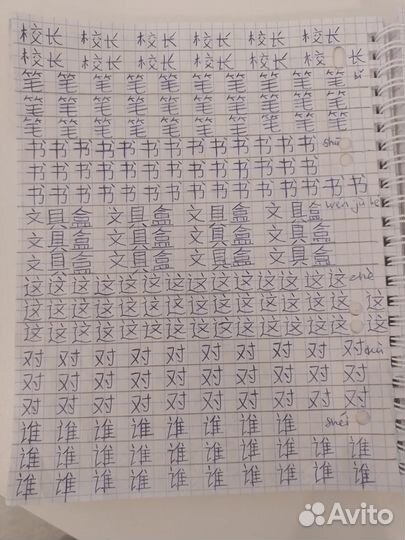 校长 校长 校长 校长 校长 校长
校长 校长 校长 校长 校长 校长
笔 笔 笔 笔 笔 笔 笔 笔 笔 笔 bǐ
笔 笔 笔 笔 笔 笔 笔 笔 笔 笔
笔 笔 笔 笔 笔 笔 笔 笔 笔 笔
书书书书书书书书书书书书书 shū
书书书书书书书书书书书书书
书书书书书书书书书书书书书书书
文具盒 文具盒 文具盒 文具盒 wén jù hé
文具盒 文具盒 文具盒 文具盒
文具盒 文具盒 文具盒 文具盒
这这这这这这这这这这这这这这 zhè
这这这这这这这这这这这这这这 这
这这这这这这这这这这这这这这 这
对 对 对 对 对 对 对 对 对 对 duì
对 对 对 对 对 对 对 对 对 对
对 对 对 对 对 对 对 对 对 对
谁 谁 谁 谁 谁 谁 谁 谁 shéi
谁 谁 谁 谁 谁 谁 谁 谁 谁 谁
谁 谁 谁 谁 谁 谁 谁 谁 谁 谁
Avito